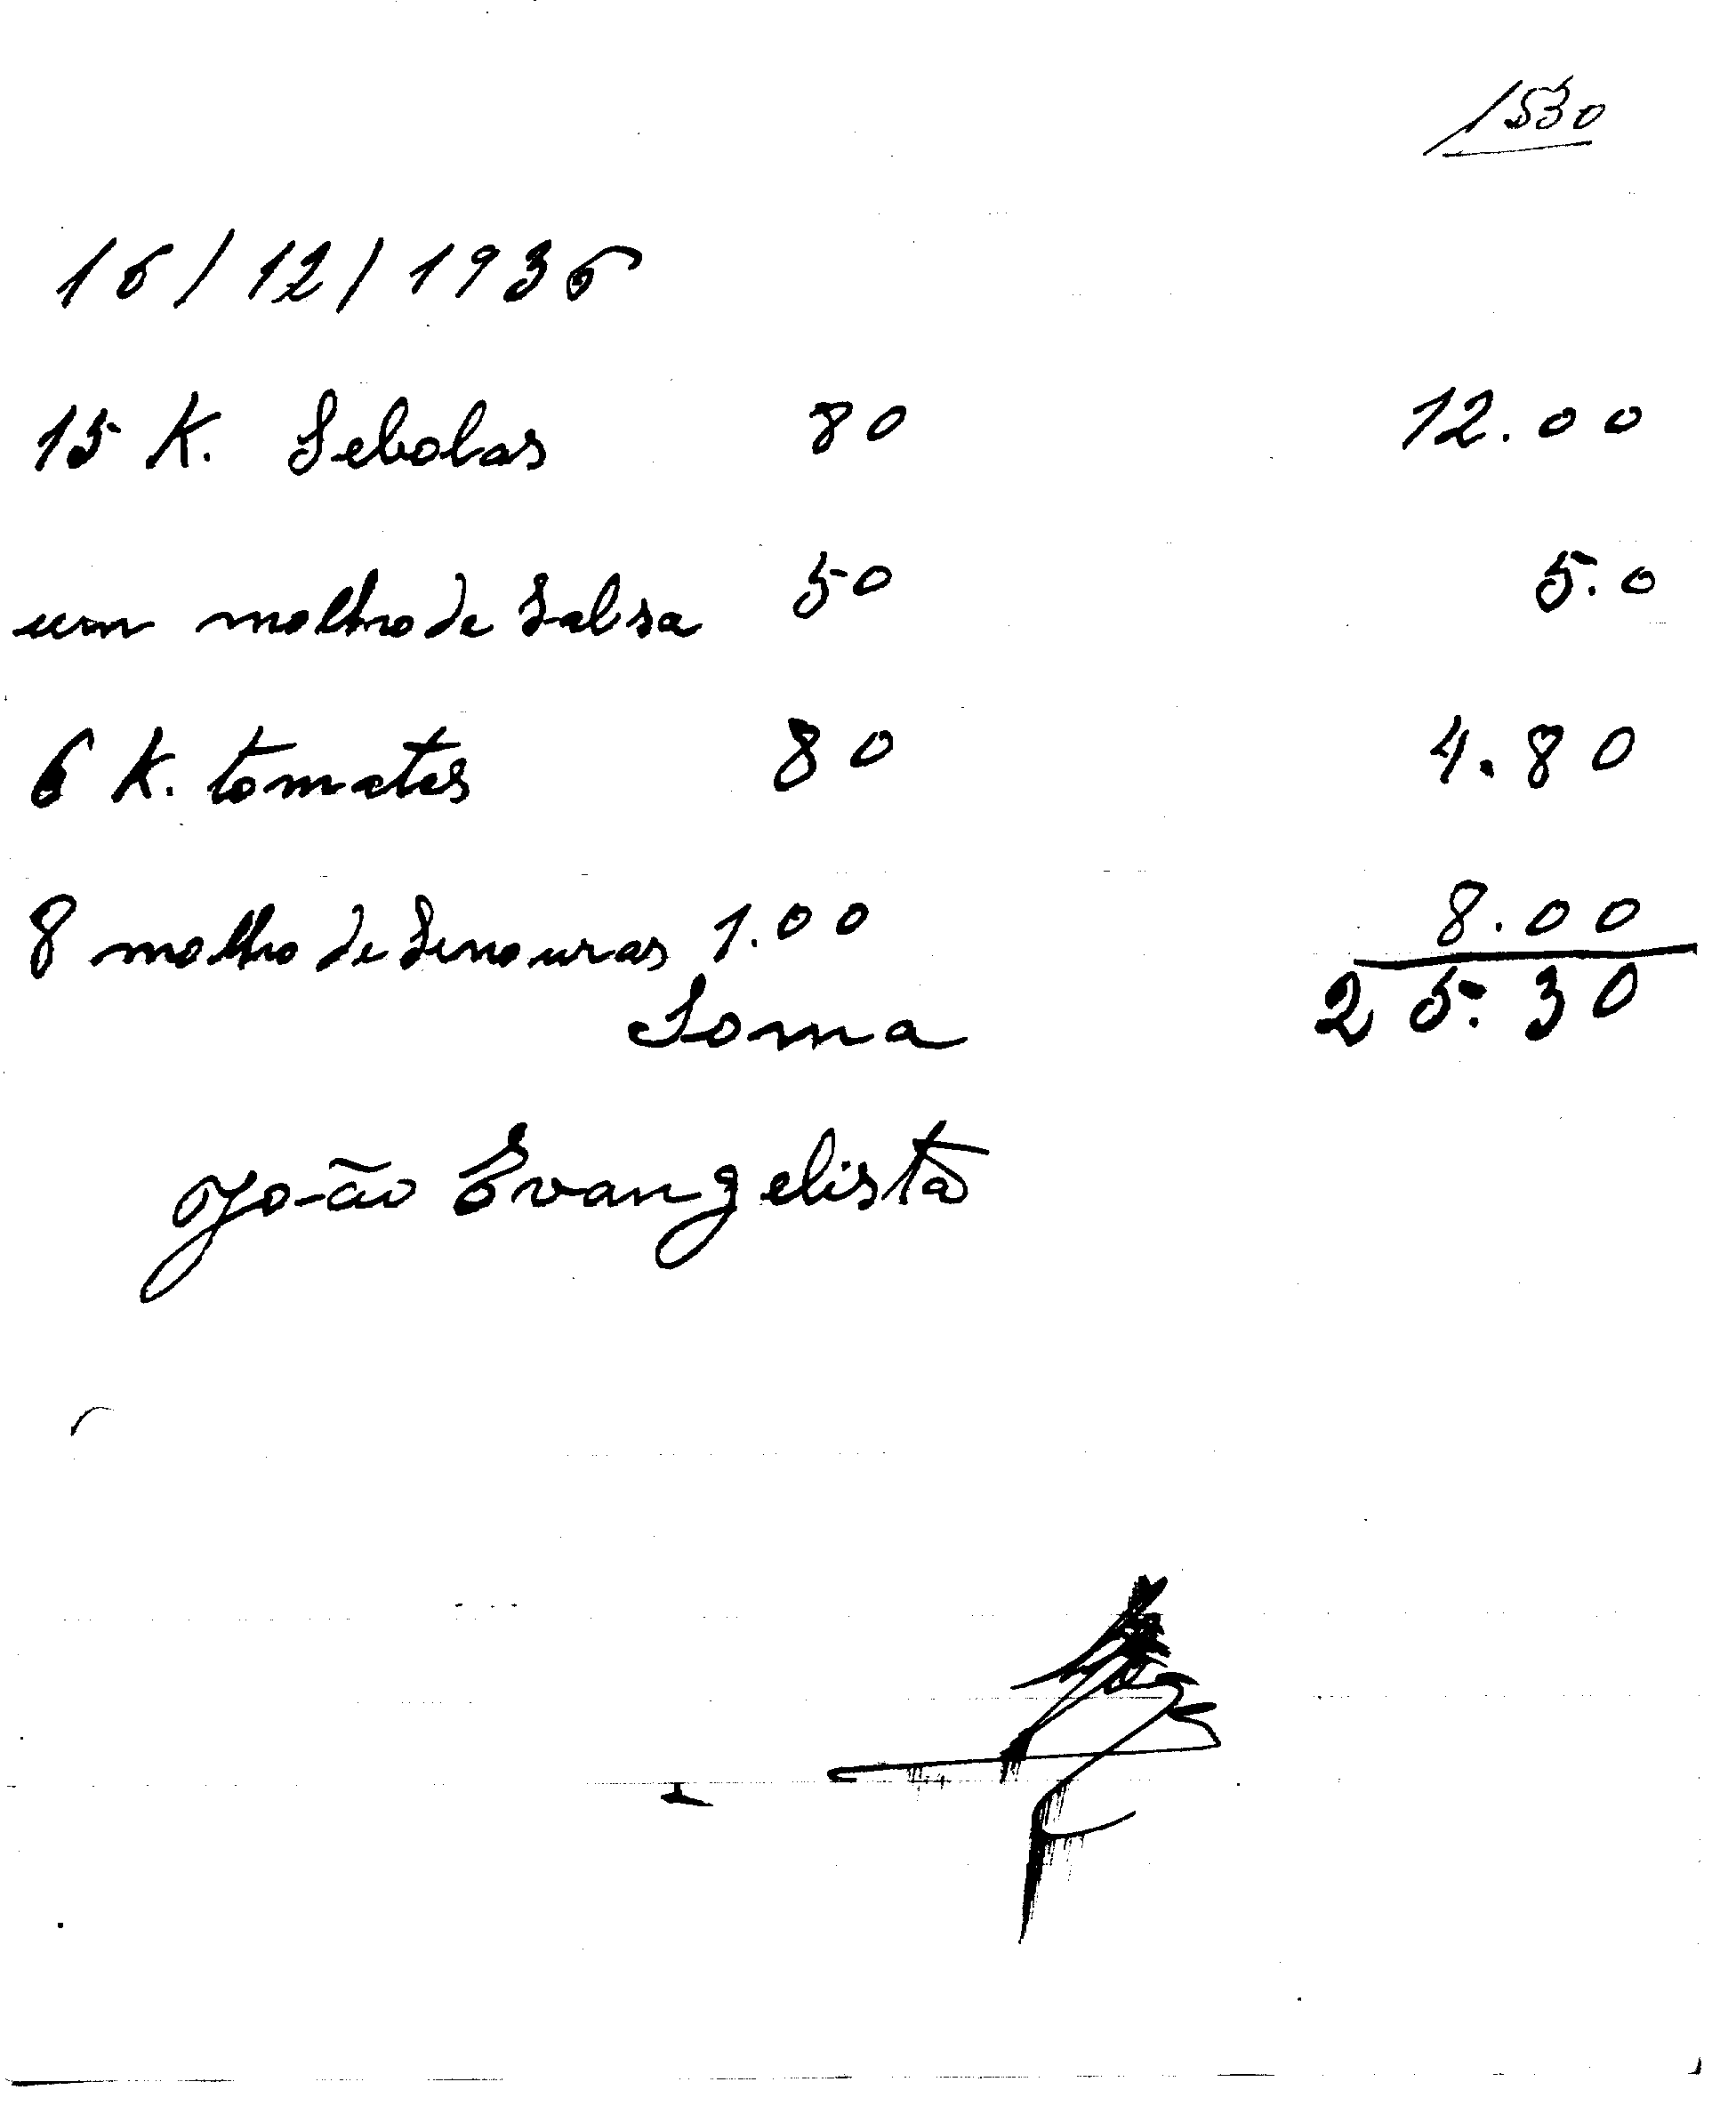 1530
16/12/1936
15 K. Sebolas 80 12.00
um molho de Salsa 50 5.0
6 K. tomates 80 4.80
8 molho de Senouras 1.00 8.00
Soma 25.30
João Evangelista